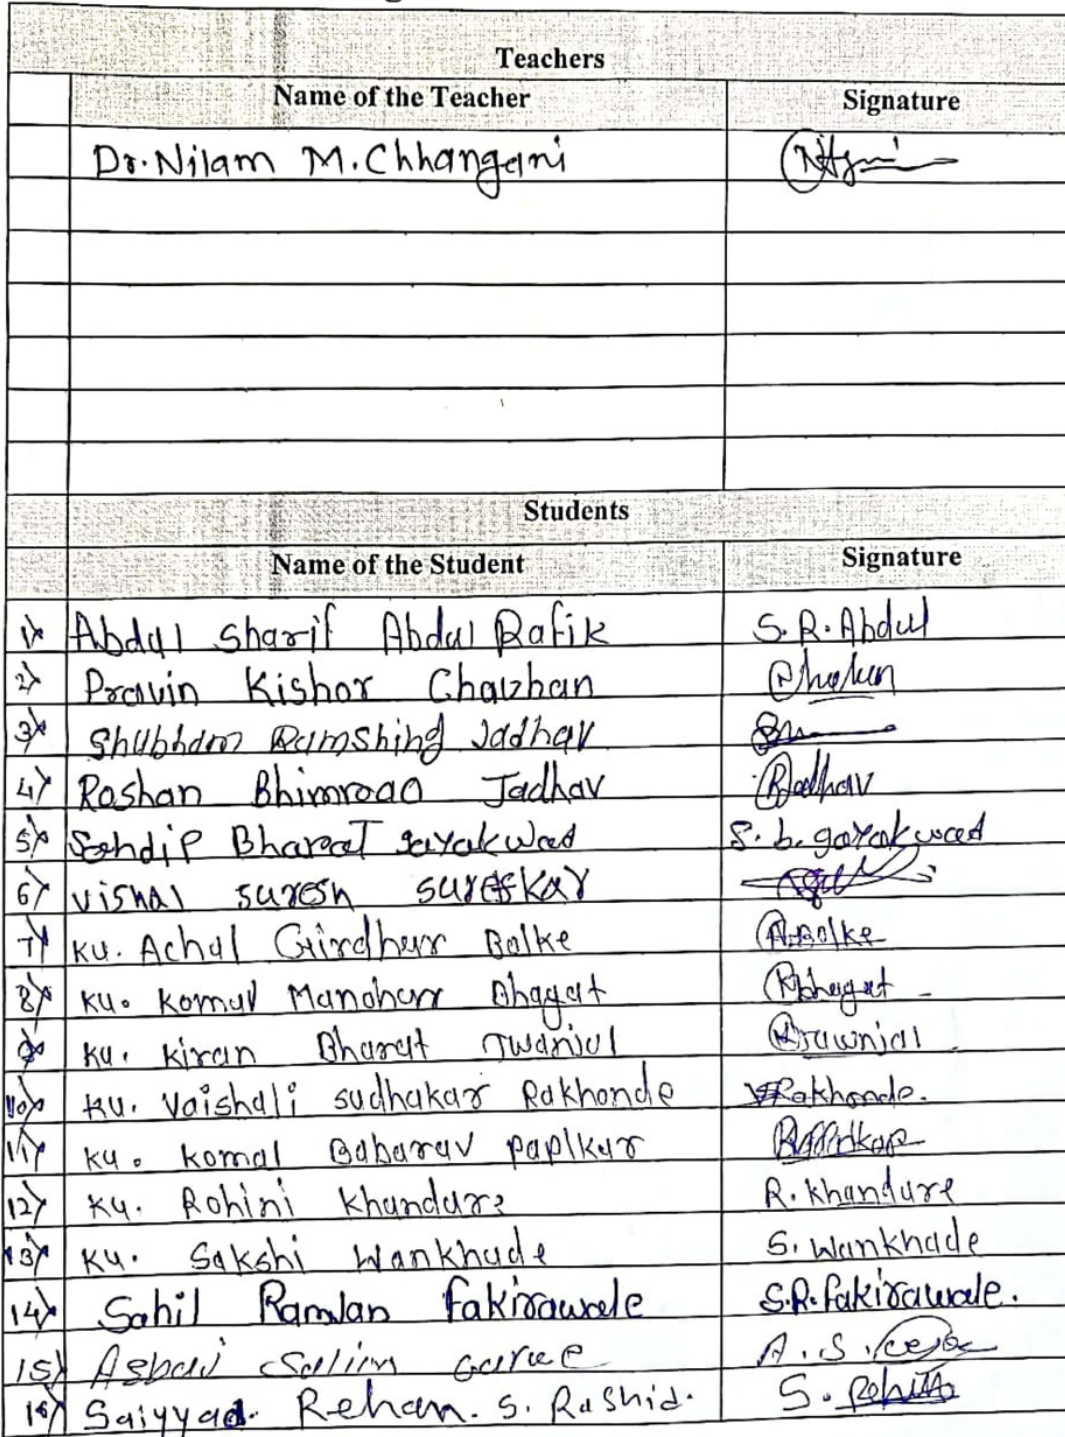 Teachers
Name of the Teacher Signature
Dr. Nilam M. Chhangani
Students
Name of the Student Signature
1) Abdul Sharif Abdul Rafik S. R. Abdul
2) Pravin Kishor Chauhan
3) Shubham Ramshing Jadhav
4) Roshan Bhimrao Jadhav RJadhav
5) Sandip Bharat gayakwad S. b. gayakwad
6) vishal suresh
7) Ku. Achal Girdhar Bolke A.Bolke
8) Ku. Komal Manohar Bhagat KBhagat
9) Ku. Kiran Bharat
10) Ku. Vaishali sudhakar Rakhonde VRakhonde.
11) Ku. Komal Babarav paplkar
12) Ku. Rohini Khandare R. Khandare
13) Ku. Sakshi Wankhade S. Wankhade
14) Sahil Ramjan Fakirawale S.R. Fakirawale.
15) Salim A. S.
16) Saiyyad. Rehan. S. Rashid. S.